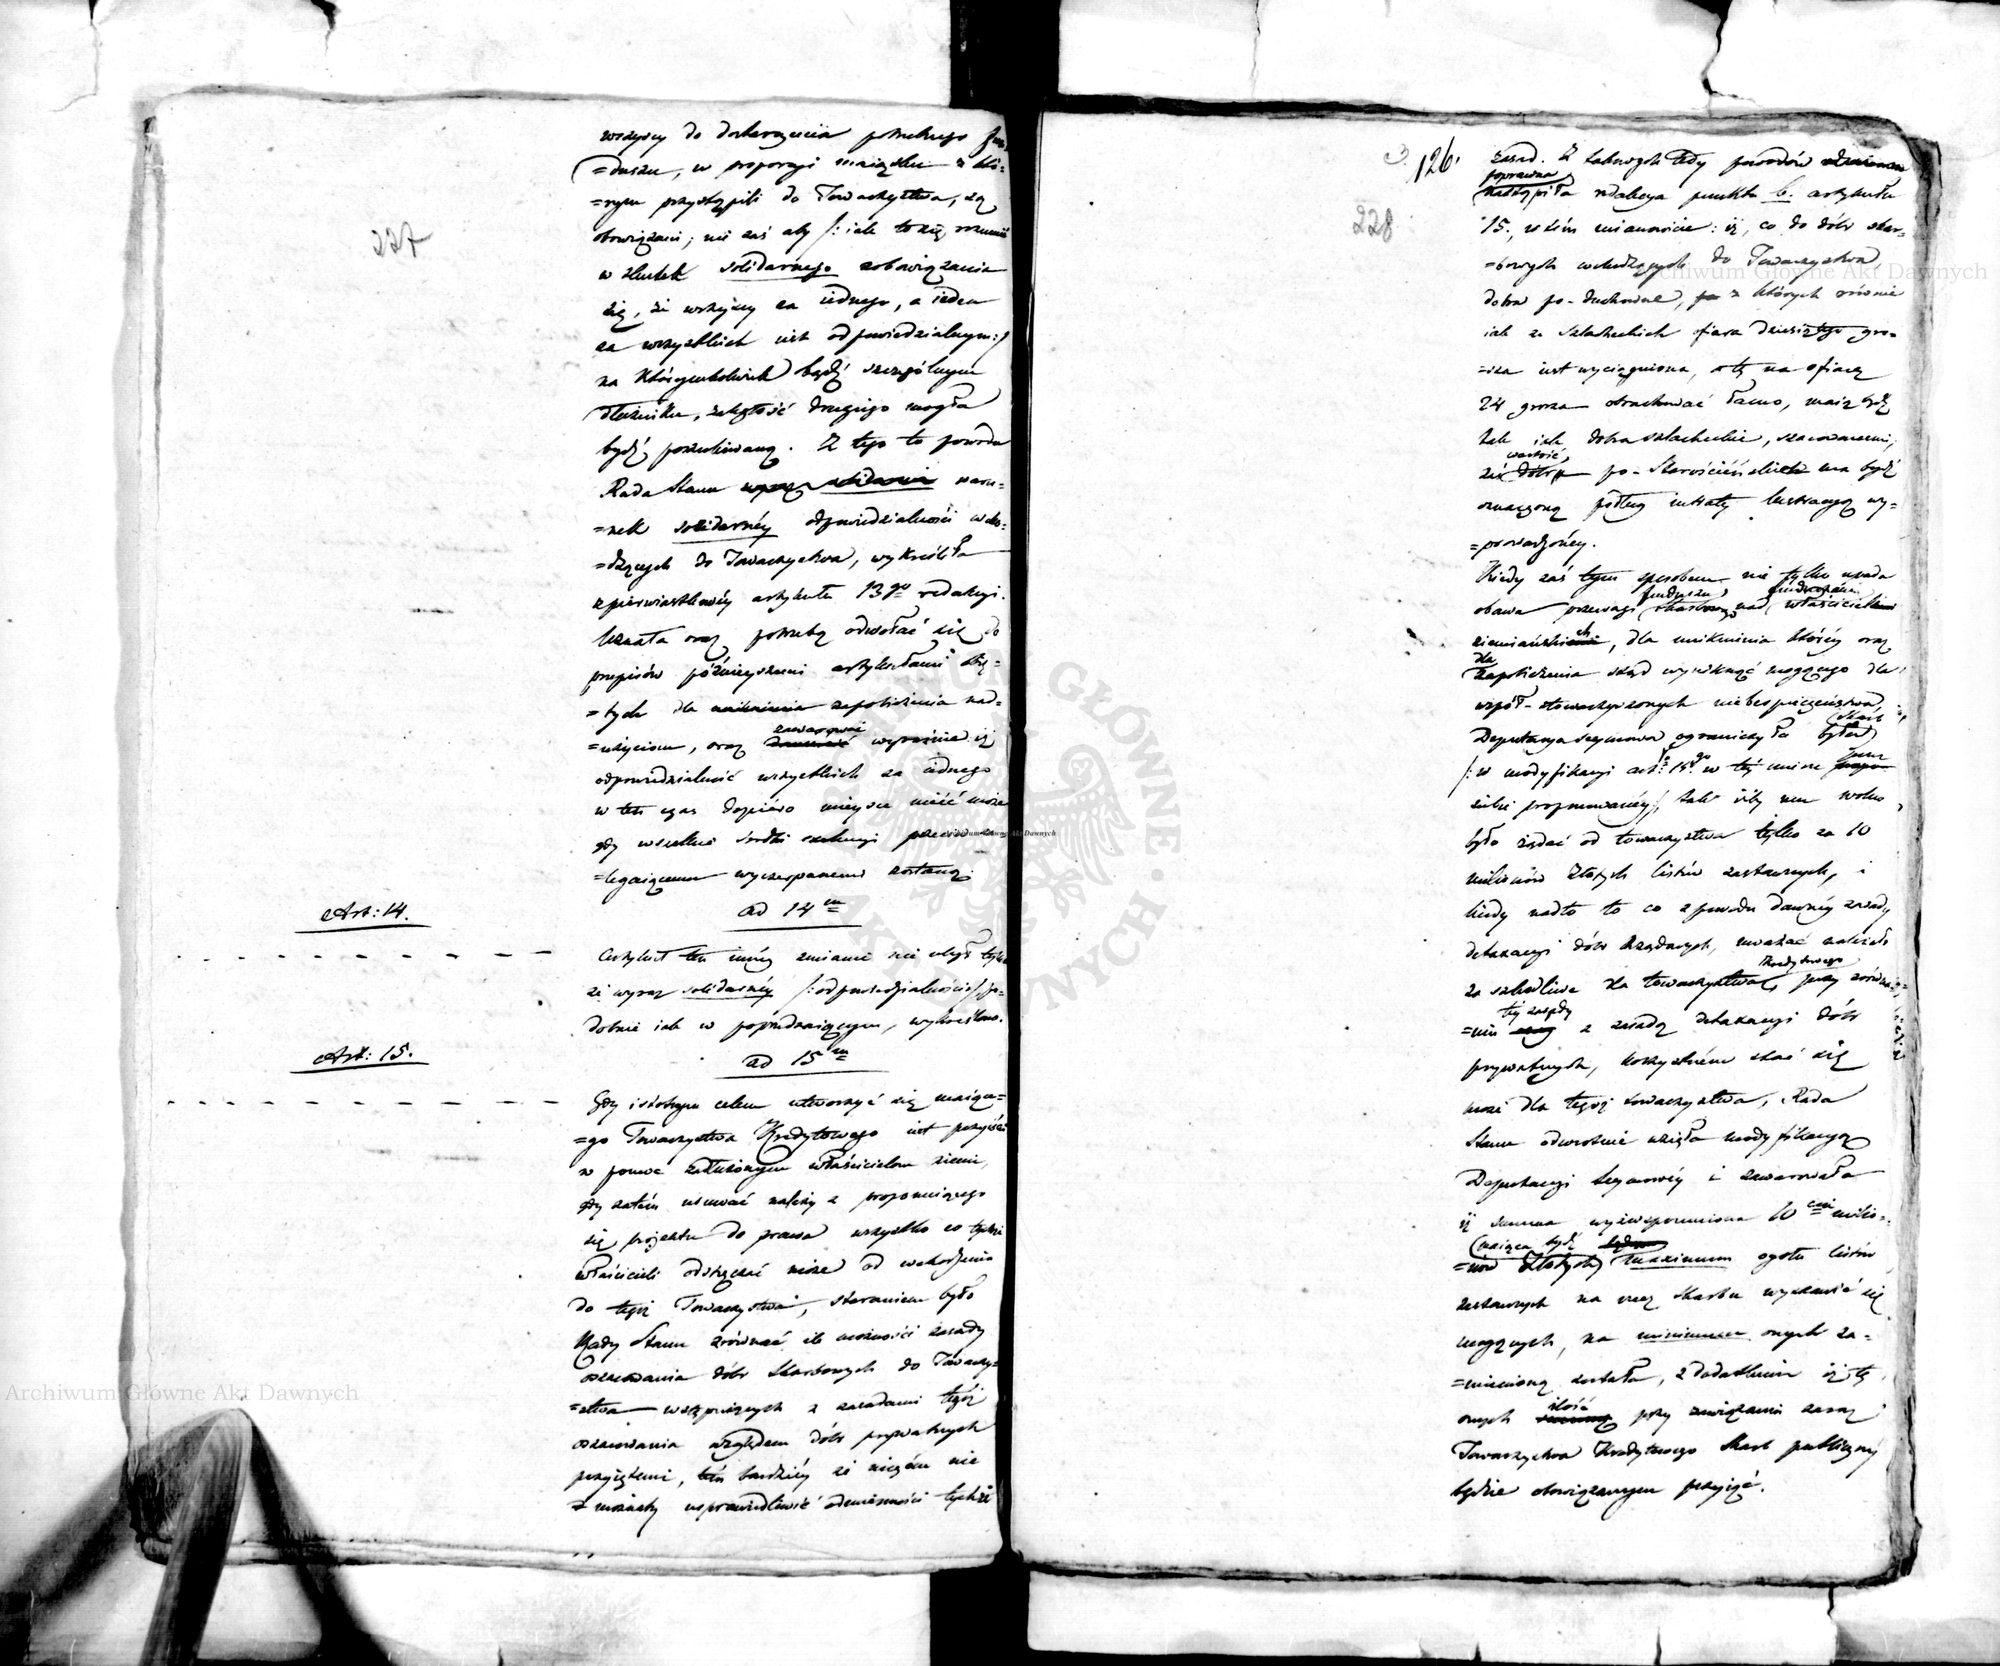 227
wszyscy do dostarczenia potrzebnego fun-
=duszu, w proporcyi maiątku z któ-
=rym przystąpili do Towarzystwa, są
obowiązani; nie zaś aby /: iak to się rozumie
w skutek solidarnego zobowiązania
się, że wszyscy za iednego, a ieden
za wszystkich iest odpowiedzialnym :/
na którymkolwiek bądź szczególnym
dłużniku, zaległość drugiego mogła
bydź poszukiwaną. Z tego to powodu
Rada Stanu wyraz solidarnie waru-
=nek solidarnéy odpowiedzialności wcho-
=dzących do Towarzystwa, wykreśliła
z pierwiastkowéy artykułu 13go redakcyi.
Uznała oraz potrzebę odwołać się do
przepisów późnieyszemi artykułami obię-
=tych dla uniknienia zapobieżenia nad-
=użyciom, oraz zawarować wyraźnie iż
odpowiedzialność wszystkich za iednego
w ten czas dopiero mieysce mieć może
gdy wszelkie środki exekucyi przeciw za-
=legaiącemu wyczerpanemi zostaną.
Art: 14.
ad 14m
Artykuł ten innéy zmianie nie uległ tylko
że wyraz solidarnéy /: odpowiedzialności :/ po-
dobnie iak w poprzedzaiącym, wykreślono.
Art: 15.
ad 15m
Gdy istotnym celem utworzyć się maiące-
=go Towarzystwa Kredytowego iest przyyść
w pomoc zadłużonym właścicielom ziemi,
gdy zatém usuwać należy z proponuiącego
się projektu do prawa wszystko co tychże
właścicieli odstręczać może od wchodzenia
do tegoż Towarzystwa, staraniem było
Rady Stanu zrównać ile możności zasady
oszacowania dóbr Skarbowych do Towarzy-
=stwa wstępuiących z zasadami tegóż
oszacowania względem dóbr prywatnych
przyiętemi, tém bardziéy że niczém nie
możnaby usprawiedliwić odmienności tychże
3. 126.
228
zasad. Z takowych tedy powodów
poprawna
nastąpiła redakcya punktu b. artykułu
15., w tém mianowicie: iż, co do dóbr skar-
=bowych wchodzących do Towarzystwa
dobra po-duchowne, z których równie
iak ze szlacheckich ofiara dziesiątego gro-
=sza iest wyciągniona, a tę na ofiarę
24 grosza obrachować łatwo, maią bydź
tak iak dobra szlacheckie, szacowanemi,
wartość
zaś dóbr po-Starościńskich ma bydź
oznaczoną podług intraty lustracyą wy-
=prowadzonéy.
Kiedy zaś tym sposobem nie tylko upada
funduszu funduszami
obawa przewagi skarbowego nad właścicielami
ziemiańskiemi, dla uniknienia któréy oraz
dla
zapobieżenia skąd wyniknąć mogącego dla
współ-stowarzyszonych niebezpieczeństwa,
Skarb
Deputacya Seymowa ograniczyła była
/: w modyfikacyi art: 15go w téj mierze przez
siebie proponowanéy :/ tak iżby mu wolno
było żądać od towarzystwa tylko za 60
milionów Złotych listów zastawnych, i
kiedy nadto to co z powodu dawnéy zasady
detaxacyi dóbr Rządowych, uważać należało
Kredytowego
za szkodliwe dla towarzystwa, przy zrówna-
téj zasady
=niu z zasadą detaxacyi dóbr
prywatnych, korzystném stać się
może dla tegoż towarzystwa, Rada
Stanu odwrotnie wzięła modyfikacyą
Deputacyi Seymowéy i zawarowała
iż summa wyżéwspomniona 60ciu milio-
maiąca bydź
=nów Złotych maximum ogółu listów
zastawnych na rzecz Skarbu wydawać się
mogących, na minimum onych za-
=mienioną została, z dodatkiem iż tę
ilość
onych przy zawiązaniu zaraz
Towarzystwa Kredytowego Skarb publiczny
będzie obowiązanym przyiąć.
Archiwum Główne Akt Dawnych
Archiwum Główne Akt Dawnych
Archiwum Główne Akt Dawnych